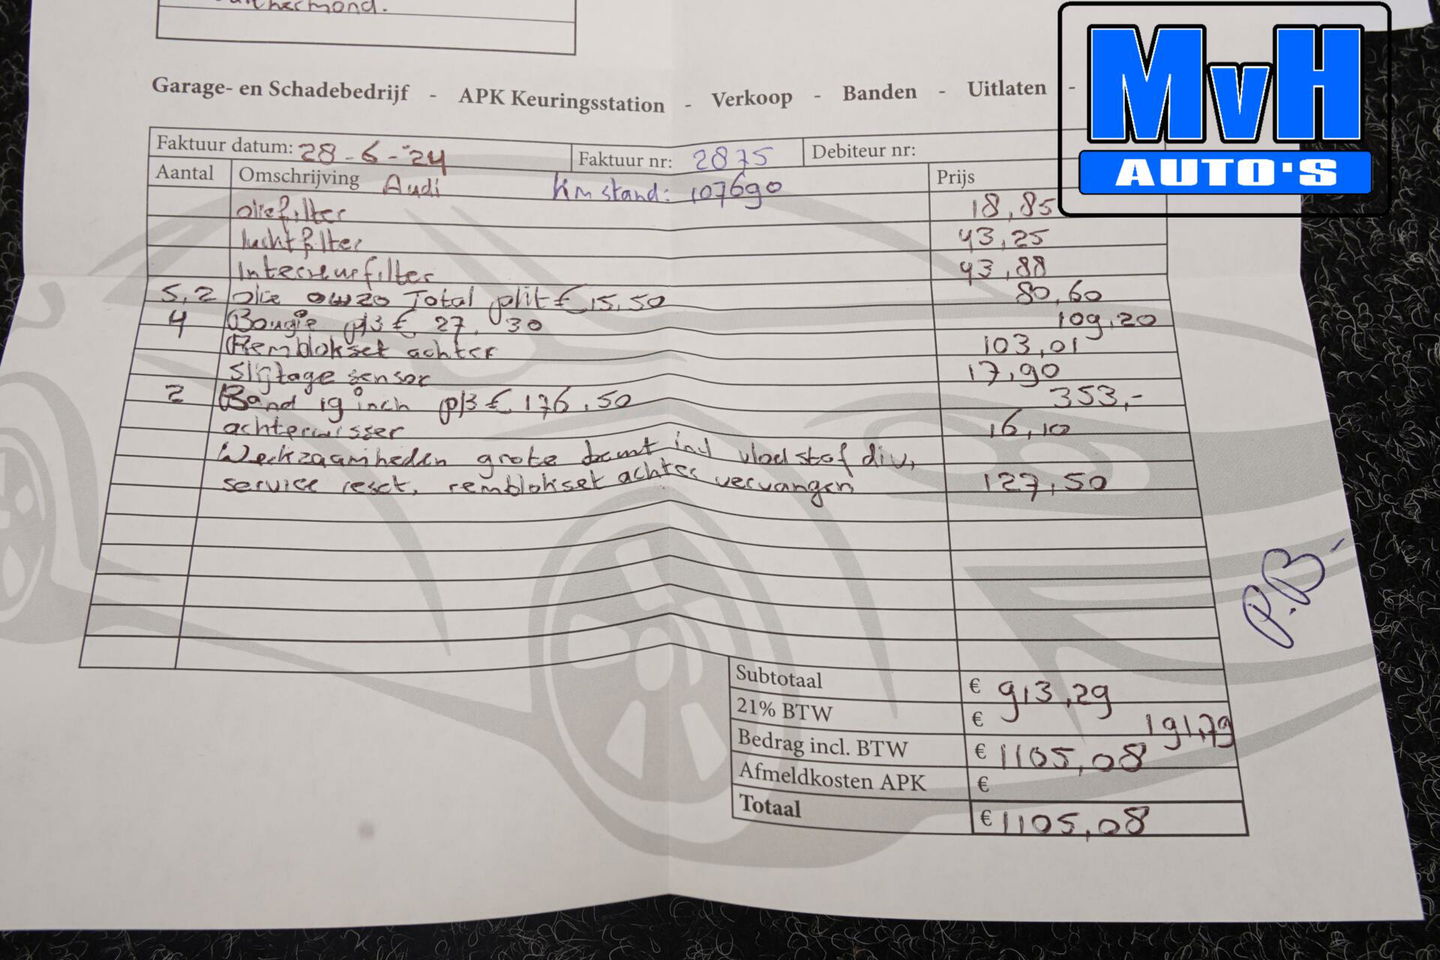 Garage- en Schadebedrijf - APK Keuringsstation - Verkoop - Banden - Uitlaten -
MvH
AUTO'S
Faktuur datum: 28-6-'24 Faktuur nr: 2875 Debiteur nr:
Aantal Omschrijving Audi Km stand: 107690 Prijs
oliefilter 18,85
luchtfilter 43,25
Interieurfilter 43,88
5,2 olie 0w20 Total p/lit € 15,50 80,60
4 Bougie p/s € 27,30 109,20
Remblokset achter 103,01
Slijtage sensor 17,90
2 Band 19 inch p/s € 176,50 353,-
achterwisser 16,10
Werkzaamheden grote beurt incl vloeistof div,
service reset, remblokset achter vervangen 127,50
P.B-
Subtotaal € 913,29
21% BTW € 191,79
Bedrag incl. BTW € 1105,08
Afmeldkosten APK €
Totaal € 1105,08